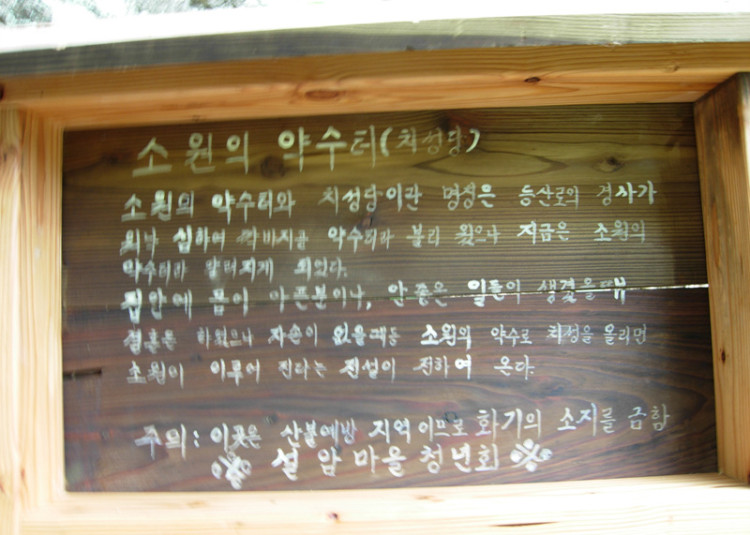 소원의 약수터(치성당)
소원의 약수터와 치성당이란 명성은 등산로의 경사가
심하여 약수터라 불리 웠으나 지금은 소원의
약수터라 알려지게 되었다.
집안에 몸이 아픈분이나, 안좋은 일들이 생겼을때
하였으나 자손이 없을때등 소원의 약수로 치성을 올리면
소원이 이루어 진다는 전설이 전하여 온다.
주의: 이곳은 산불예방 지역이므로 화기의 소지를 금함
※ 설암마을청년회 ※